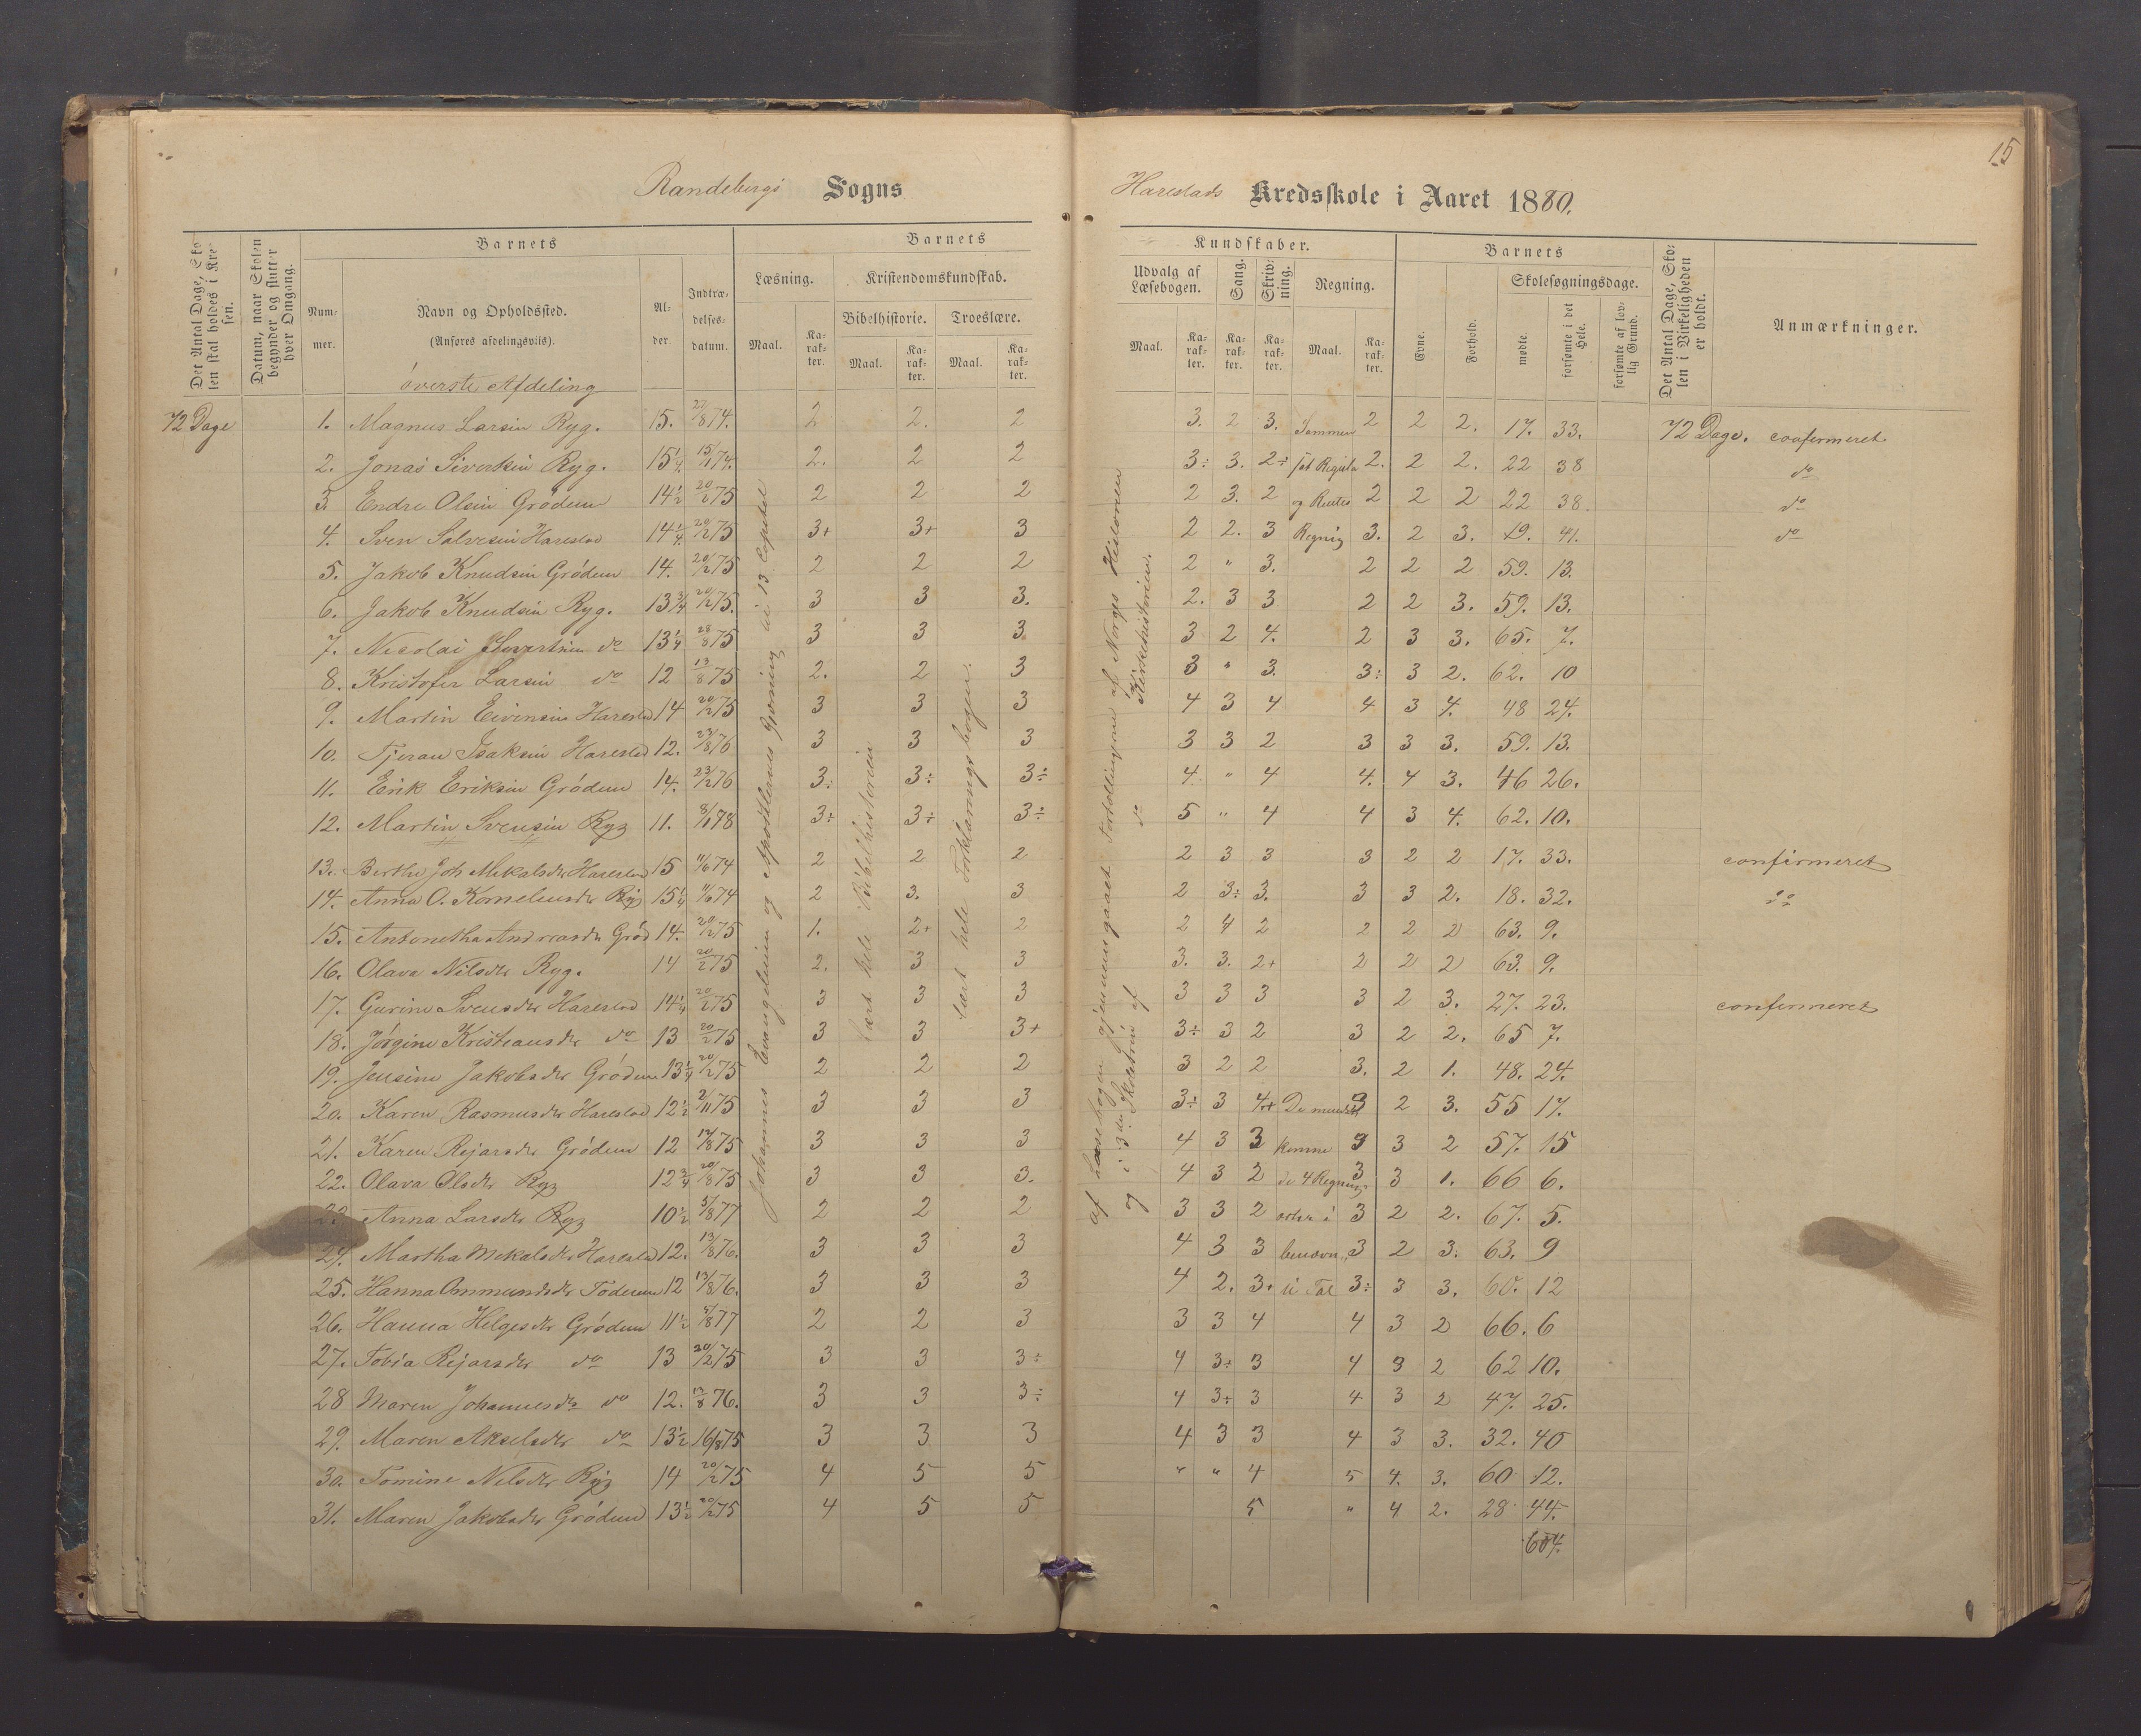 15
Randebergs Sogns Harestads Kredsskole i Aaret 1880.
Det Antal Dage, Skolen skal holdes i Kredsen.
Datum, naar Skolen begynder og slutter hver Omgang.
Barnets
Nummer.
Navn og Opholdssted.
(Anføres afdelingsvils).
Alder.
Indtrædelsesdatum.
Barnets Kundskaber.
Læsning.
Maal.
Karakter.
Kristendomskundskab.
Bibelhistorie.
Maal.
Karakter.
Troeslære.
Maal.
Karakter.
Udvalg af Læsebogen.
Maal.
Karakter.
Sang.
Karakter.
Skrivning.
Karakter.
Regning.
Maal.
Karakter.
Barnets
Evne.
Forhold.
Skolesøgningsdage.
mødte.
forsømte i det Hele.
forsømte af lovlig Grund.
Det Antal Dage, Skolen i Virkeligheden er holdt.
Anmærkninger.
øverste Afdeling
72 Dage 1. Magnus Larsin Ryg. 15. 27/8 74. 2 2. 2 3. 2 3. Sammen 2 2 2. 17. 33. 72 Dage. confirmeret
2. Jonas Sivertsin Ryg. 15 1/4 15/11 74. 2. 2 2 3÷ 3. 2÷ sat Regula 2. 2 2. 22 38 do
3. Endre Olsin Grødem 14 1/2 20/2 75 2 2 2 2 3. 2 og Rentes 2 2 2 22 38. do
4. Sven Salvesin Harestad 14 1/4 20/2 75 3+ 3+ 3 2 2. 3 Regnig 3. 2 3. 19. 41. do
5. Jakob Knudsin Grødem 14. 20/2 75 2 2 2 2 " 3. 2 2 2 59. 13.
6. Jakob Knudsin Ryg. 13 3/4 20/2 75. 3 3 3. 2. 3 3 2 2 3. 59. 13.
7. Nicolai Sivertsin do 13 1/4 28/8 75 3 3 3 3 2 4. 2 3 3. 65. 7.
8. Kristofer Larsin do 12 13/8 75 2. 2 3 3 " 3. 3÷ 3 2. 62. 10
9. Martin Eivensin Harestad 14 20/2 75 3 3 3 4 3 4 4 3 4. 48 24.
10. Tjeran Isaksin Harestad 12. 23/8 76 3 3 3 3 3 2 3 3 3. 59. 13.
11. Erik Eriksin Grødem 14. 23/2 76 3÷ 3÷ 3÷ 4. " 4 4. 4 3. 46 26.
12. Martin Svensin Ryg 11. 8/1 78 3÷ 3÷ 3÷ 5 " 4 4 3 4. 62. 10.
13. Berthe Joh Mikalsdr Harestad 15 11/6 74 2 2 2 2 3 3 3 2 2 17. 33. confirmeret
14. Anna O. Korneliusdr Ryg 15 1/4 11/6 74 2 3. 3 2 3÷ 3. 3 3 2. 18. 32. do
15. Antonetha Andreasdr Grød 14. 20/2 75 1. 2+ 2 2 4 2 2 2 2 63. 9.
16. Olava Nilsdr Ryg. 14 20/2 75 2. 3 3 3. 3. 2+ 2 2 2 63. 9.
17. Gurine Svensdr Harestad 14 1/4 20/2 75 3 3 3 3 3 3 3 2 3. 27. 23. confirmeret
18. Jørgine Kristiansdr do 13 20/2 75 3 3 3+ 3÷ 3 2 3 2 2. 65 7.
19. Jensine Jakobsdr Grødem 13 1/4 20/2 75 2 2 2 3 2 2 3. 2 1. 48. 24.
20. Karen Rasmusdr Harestad 12 1/2 2/11 75 3 3 3 3÷ 3 4+ De mindste 3 2 3. 55 17.
21. Karen Rejarsdr Grødem 12 17/8 75 3 3 3 4 3 3 kunne 3 3 2 57. 15
22. Olava Olsdr Ryg 12 3/4 20/8 75 3 3 3. 4 3 2 de 4 Regnings 3 3 1. 66 6.
23. Anna Larsdr Ryg 10 1/2 5/8 77 2 2 2 3 3 2 arter i 3 2 2. 67. 5.
24. Martha Mikalsdr Harestad 12. 13/8 76. 3 3 3 4 3 3 benævn 3 2 3. 63. 9
25. Hanna Ommundsdr Todnem 12 13/8 76. 3 3 3 4 2. 3+ te Tal 3÷ 3 3. 60. 12
26. Hanna Helgesdr Grødem 11 1/2 5/8 77 2 2 3 3 3 4 4 3 2 66. 6
27. Tobia Rejarsdr do 13 20/2 75 3 3 3÷ 4 3÷ 3 4 3 2 62 10.
28 Maren Johannesdr do 12. 13/8 76. 3 3 3÷ 4 3÷ 3 4 3 2 47. 25.
29. Maren Akselsdr do 13 1/2 16/8 75 3 3 3 4 3 3 4 3 3. 32. 40
30. Tomine Nilsdr Ryg 14 20/2 75 4 5 5 " " 4 5 4. 3. 60 12.
31. Maren Jakobsdr Grødem 13 1/2 20/2 75 4 5 5 5 " 4 2. 28 44.
604.
Johannes Evangelium og Apostlenes Gjerning til 13. Capitel
lært hele Bibelhistorien
lært hele Forklaringsbogen.
af Læsebogen gjennemgaaet Fortællingerne af Norges Historien
og i 3die Skoletrin af do Kirkehistorien.